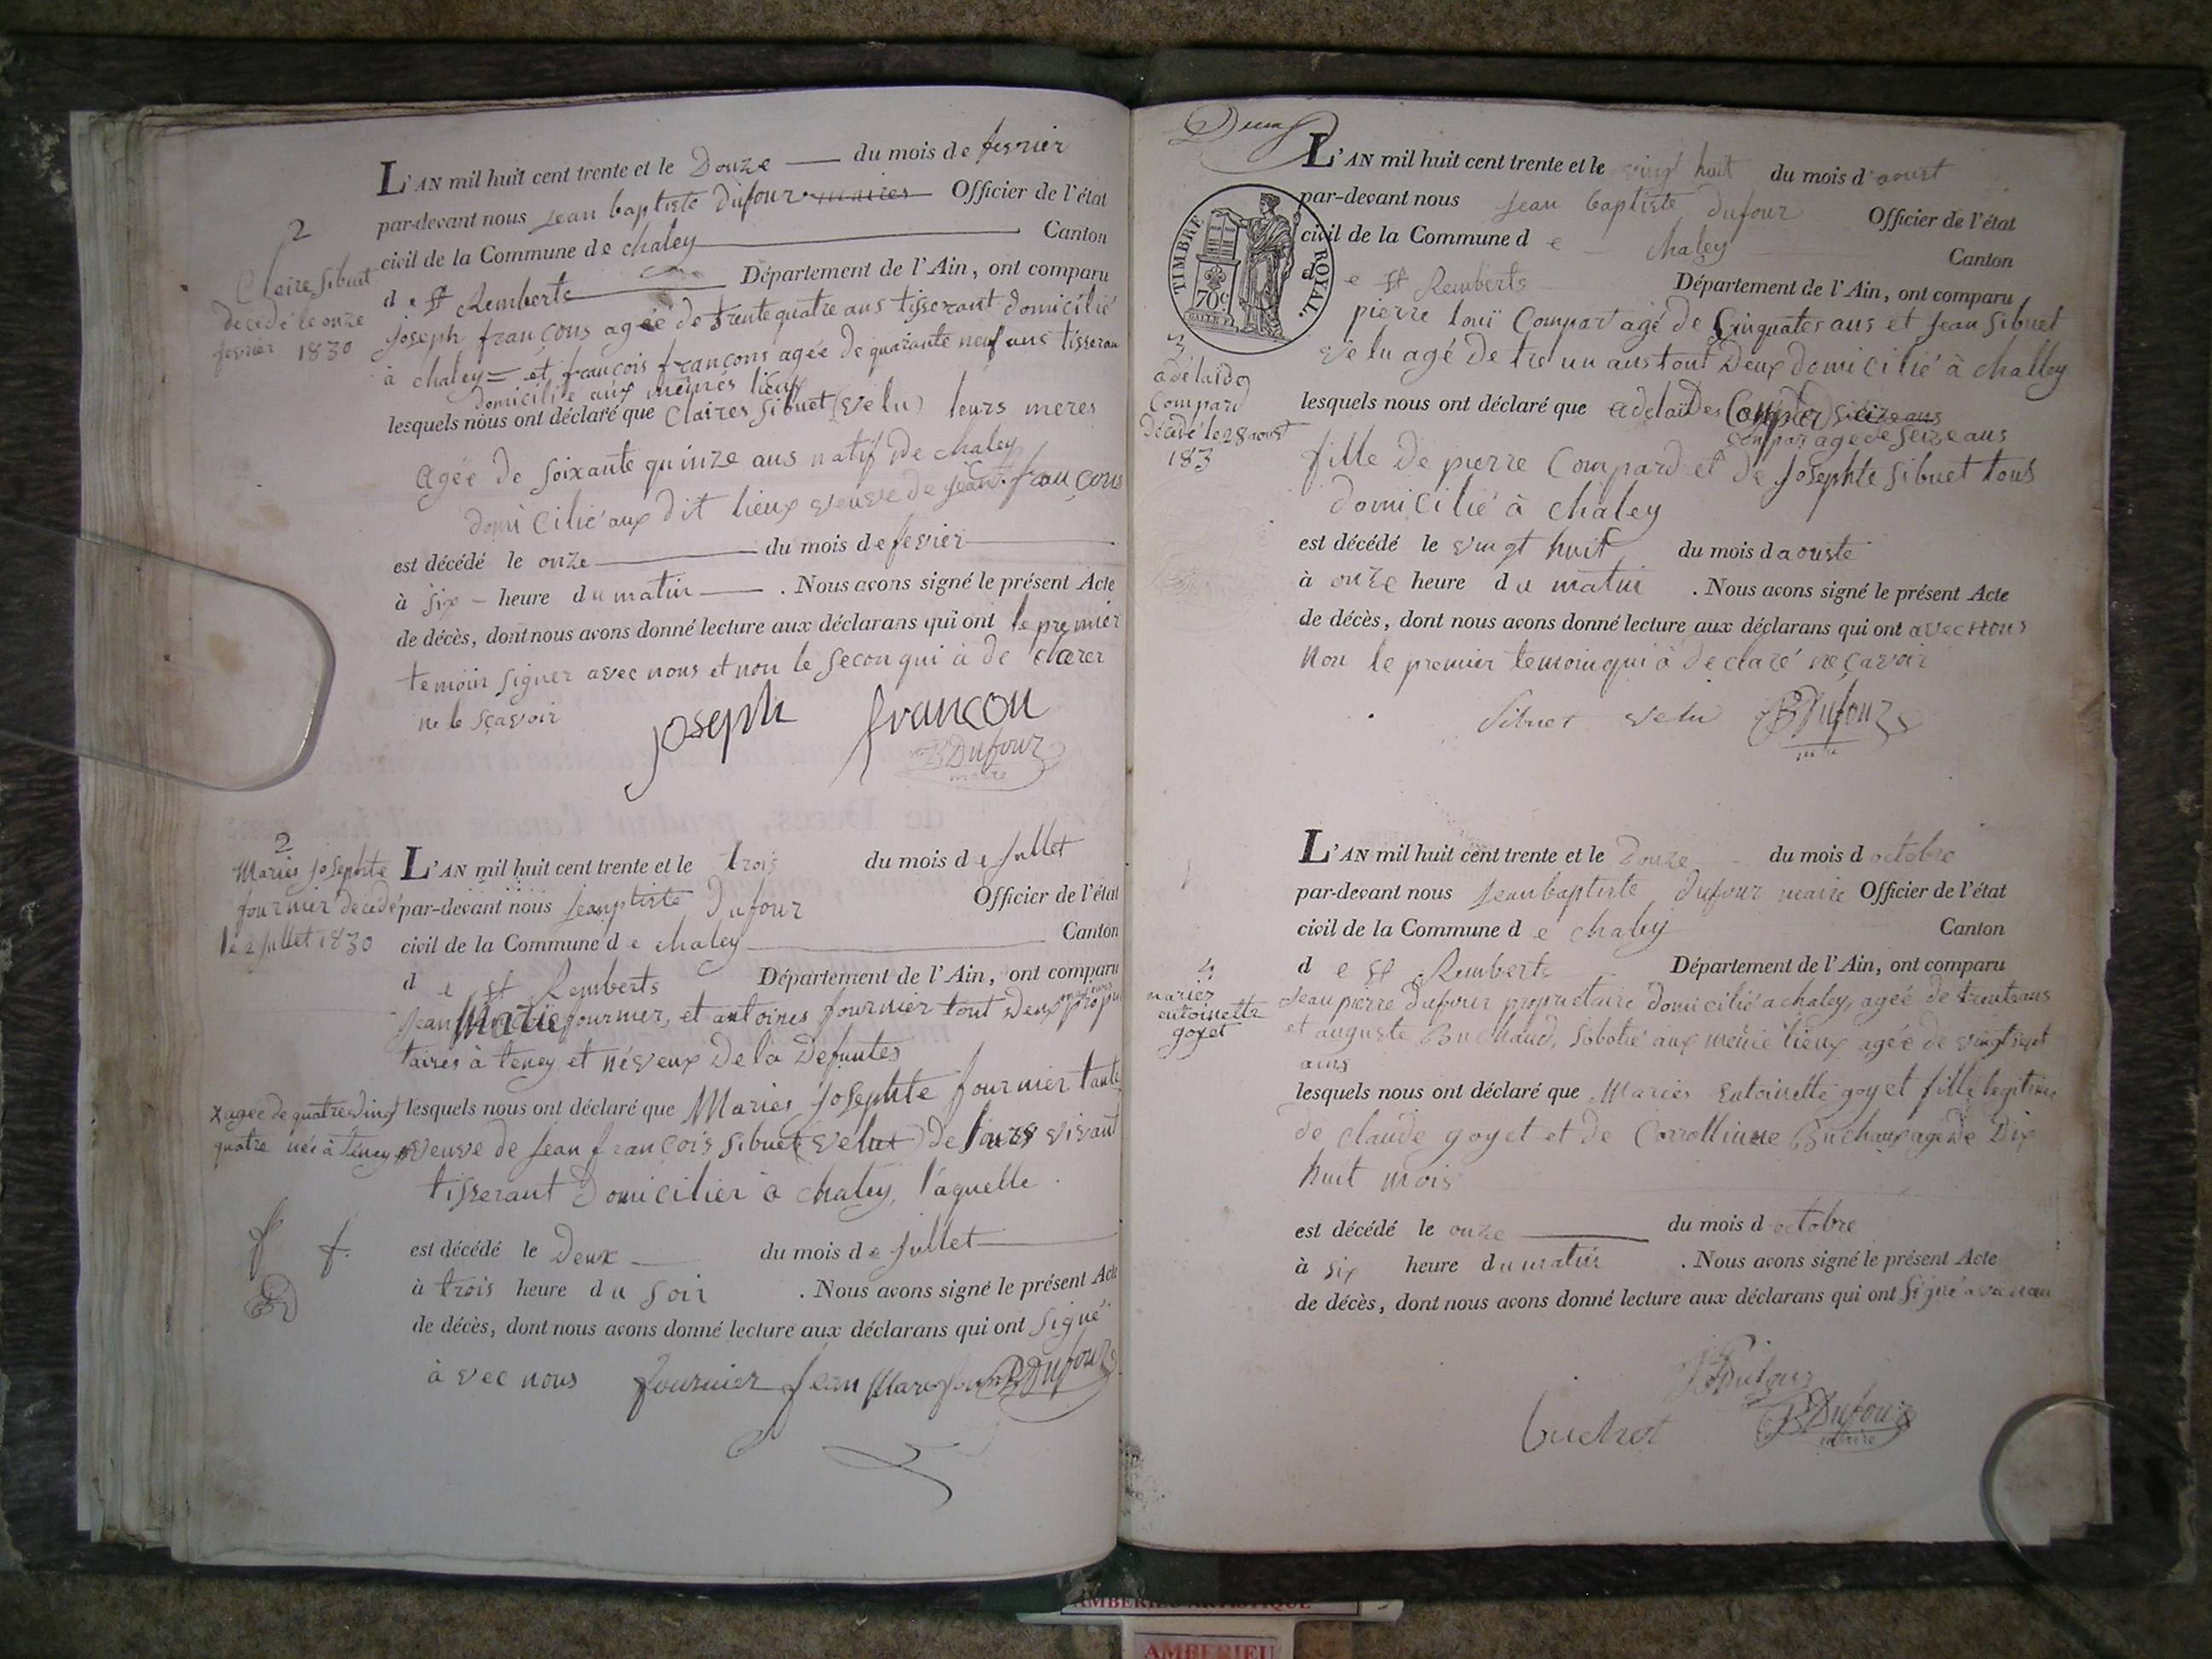 2
Claire Sibuet
decedé le onze
fevrier 1830
L'AN mil huit cent trente et le Douze du mois de fevrier
par-devant nous jean baptiste Dufour maires Officier de l'état
civil de la Commune de chaley Canton
de St Remberts Département de l'Ain, ont comparu
joseph françons agée de trente quatre ans tisserant domicilié
à chaley et francois françons agée de quarante neuf ans tisseran
domicilié aux meines lieux
lesquels nous ont déclaré que Claires Sibuet (velu) leurs meres
Agée de soixante quinze ans natif de chaley
domicilié aux dit lieux veuve de jean françons
est décédé le onze du mois de fevier
à six heure du matin. Nous avons signé le présent Acte
de décès, dont nous avons donné lecture aux déclarans qui ont le premier
temoin signer avec nous et non le secon qui à de clarer
ne le sçavoir
joseph francon
JB Dufour
maire
2
Maries josephte
fournier decedé
le 2 jullet 1830
L'AN mil huit cent trente et le trois du mois de jullet
par-devant nous jeanptiste Dufour Officier de l'état
civil de la Commune de chaley Canton
de St Remberts Département de l'Ain, ont comparu
jean Marie fournier, et antoines fournier tout deux propri
taires à teney et néveux De la Defuntes
lesquels nous ont déclaré que Maries josephte fournier tante
x agée de quatre vingt
quatre née à teney
veuve de jean francois Sibuet (velu) de vivant
tisserant domicilier à chaley, l'aquelle
est décédé le Deux du mois de jullet
à trois heure du soir. Nous avons signé le présent Acte
de décès, dont nous avons donné lecture aux déclarans qui ont signé
à vec nous fournier jean Marie JB Dufour
f f.
TIMBRE ROYAL.
70c
3
adélaide
Compard
Décédé le 28 aoust
183
L'AN mil huit cent trente et le vingt huit du mois d'aoust
par-devant nous jean baptiste Dufour Officier de l'état
civil de la Commune de chaley Canton
de St Remberts Département de l'Ain, ont comparu
pierre loui Compart agé de Cinquates ans et jean Sibuet
velu agé de tre un ans tout Deux domicilié à challey
lesquels nous ont déclaré que adelaïdes seize ans
Compar age de seize ans
fille de pierre Compard et de josephte Sibuet tous
domicilié à chaley
est décédé le vingt huit du mois d aouste
à onze heure du matin. Nous avons signé le présent Acte
de décès, dont nous avons donné lecture aux déclarans qui ont avec nous
Non le premier temoin qui à déclaré ne çavoir
Sibuet velu JB Dufour
4
maries
entoinette
goyet
L'AN mil huit cent trente et le Douze du mois d octobre
par-devant nous jean baptiste Dufour maire Officier de l'état
civil de la Commune de chaley Canton
de St Remberts Département de l'Ain, ont comparu
jean pierre Dufour propriétaire domicilié a chaley, agée de trente ans
et auguste Buchaud, Sabotié aux meme lieux agée de vingt sept
ains
lesquels nous ont déclaré que Maries Entoinette goyet fille legitime
de claude goyet et de Carolline Buchaux age de Dix
huit mois
est décédé le onze du mois d octobre
à six heure du matin. Nous avons signé le présent Acte
de décès, dont nous avons donné lecture aux déclarans qui ont signé avec nous
Dufour
buchot
JB Dufour
maire
AMBERIEU ARTISTIQUE
AMBERIEU